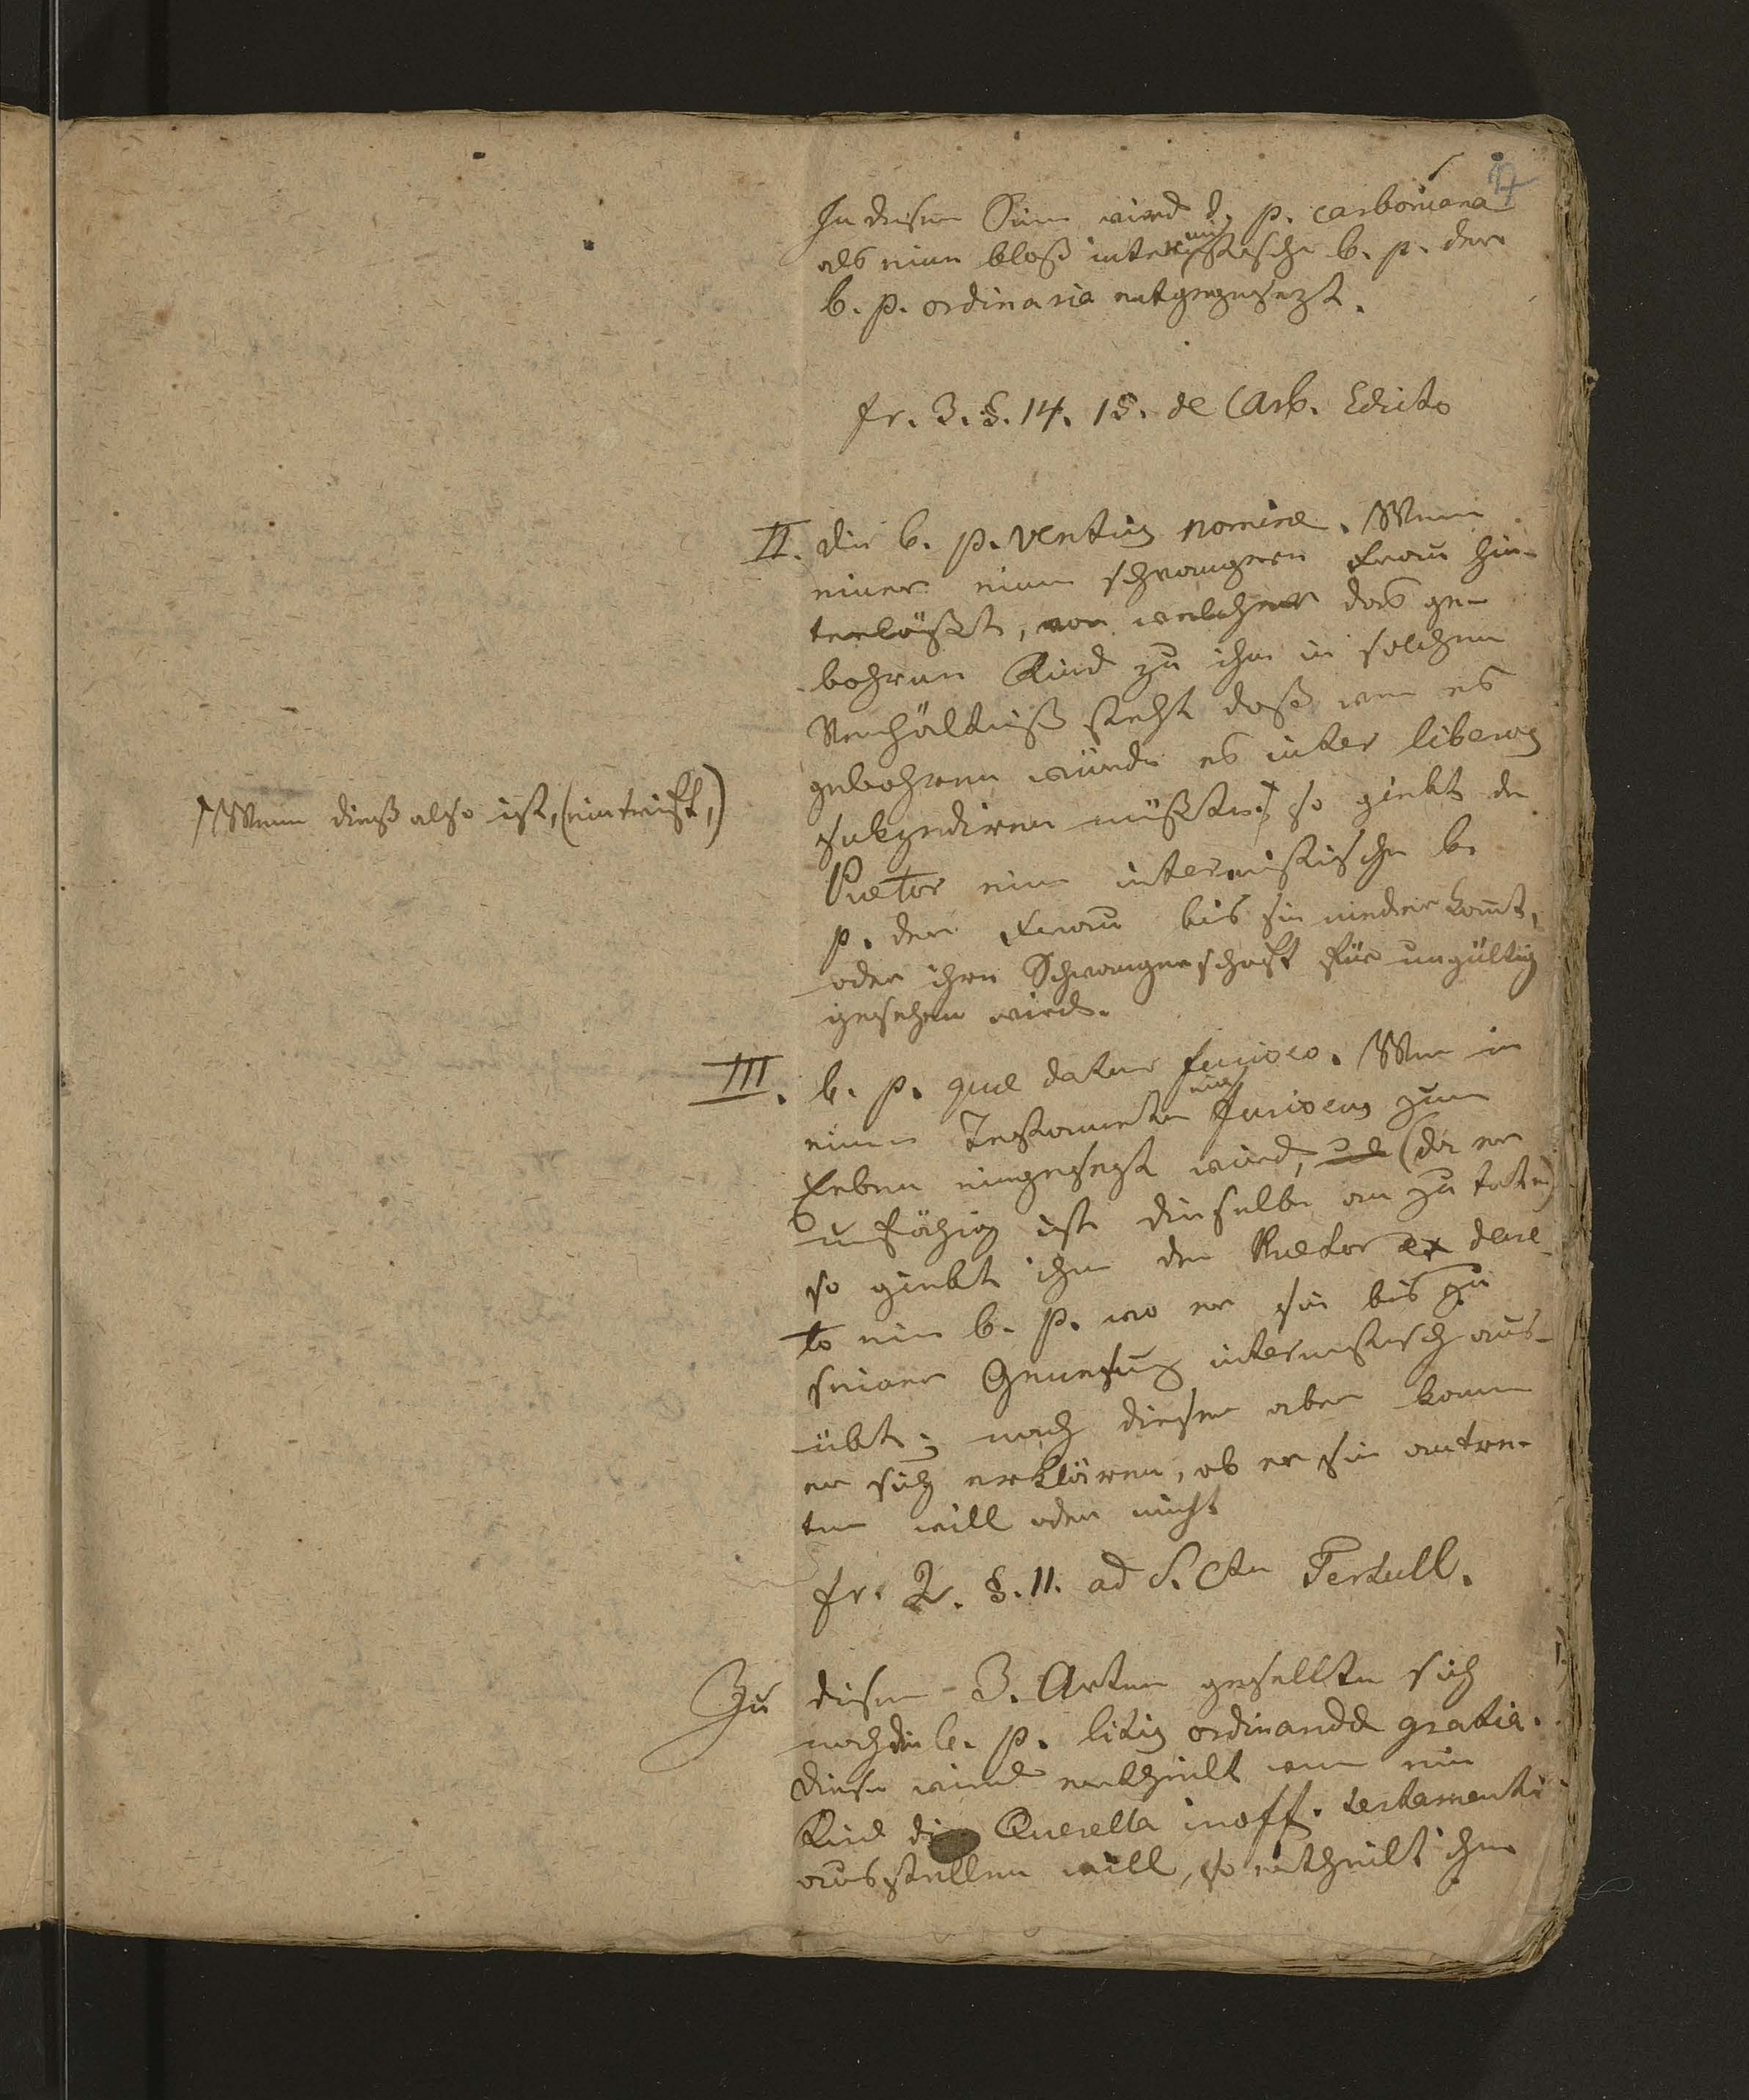 In diesem Sinn wird d. p. carboniana
als eine bloß intermistische b. p. der
b. p. ordinaria entgegengesezt.
fr. 3. §. 14. 15. de Carb. Edicto
II. die b. p. ventris nomine. Wenn
einer eine schwangere Frau hin-
terläßt, von welcher das ge-
bohrene Kind zu ihm in solchem
Verhältniß steht daß wen es
gebohren würde es inter liberos
sukzediren müßte, so giebt der
Wenn dieß also ist, (eintrift,)
Praetor eine intermistische b.
p. der Frau bis sie niederkomt,
oder ihre Schwangerschaft für ungültig
gesehen wird.
III. b. p. quae datur furioso. Wen in
einem Testamente ein furiosus zum
Erben eingesezt wird, (da er
unfähig ist dieselbe an zu treten)
so giebt ihm der Praetor ex decre-
to eine b. p. wo er sie bis zu
seiner Genesung intermistisch aus-
übt; nach dieser aber kann
er sich erklären, ob er sie antre-
ten will oder nicht
fr. 2. §. 11. ad S. Ctu Tertull.
Zu diesen 3. Arten gesellte sich
noch die b. p. litis ordinandae gratia.
diese wird ertheilt wen ein
Kind die Querella inoff. testamenti
ausstellen will, so ertheilt ihm